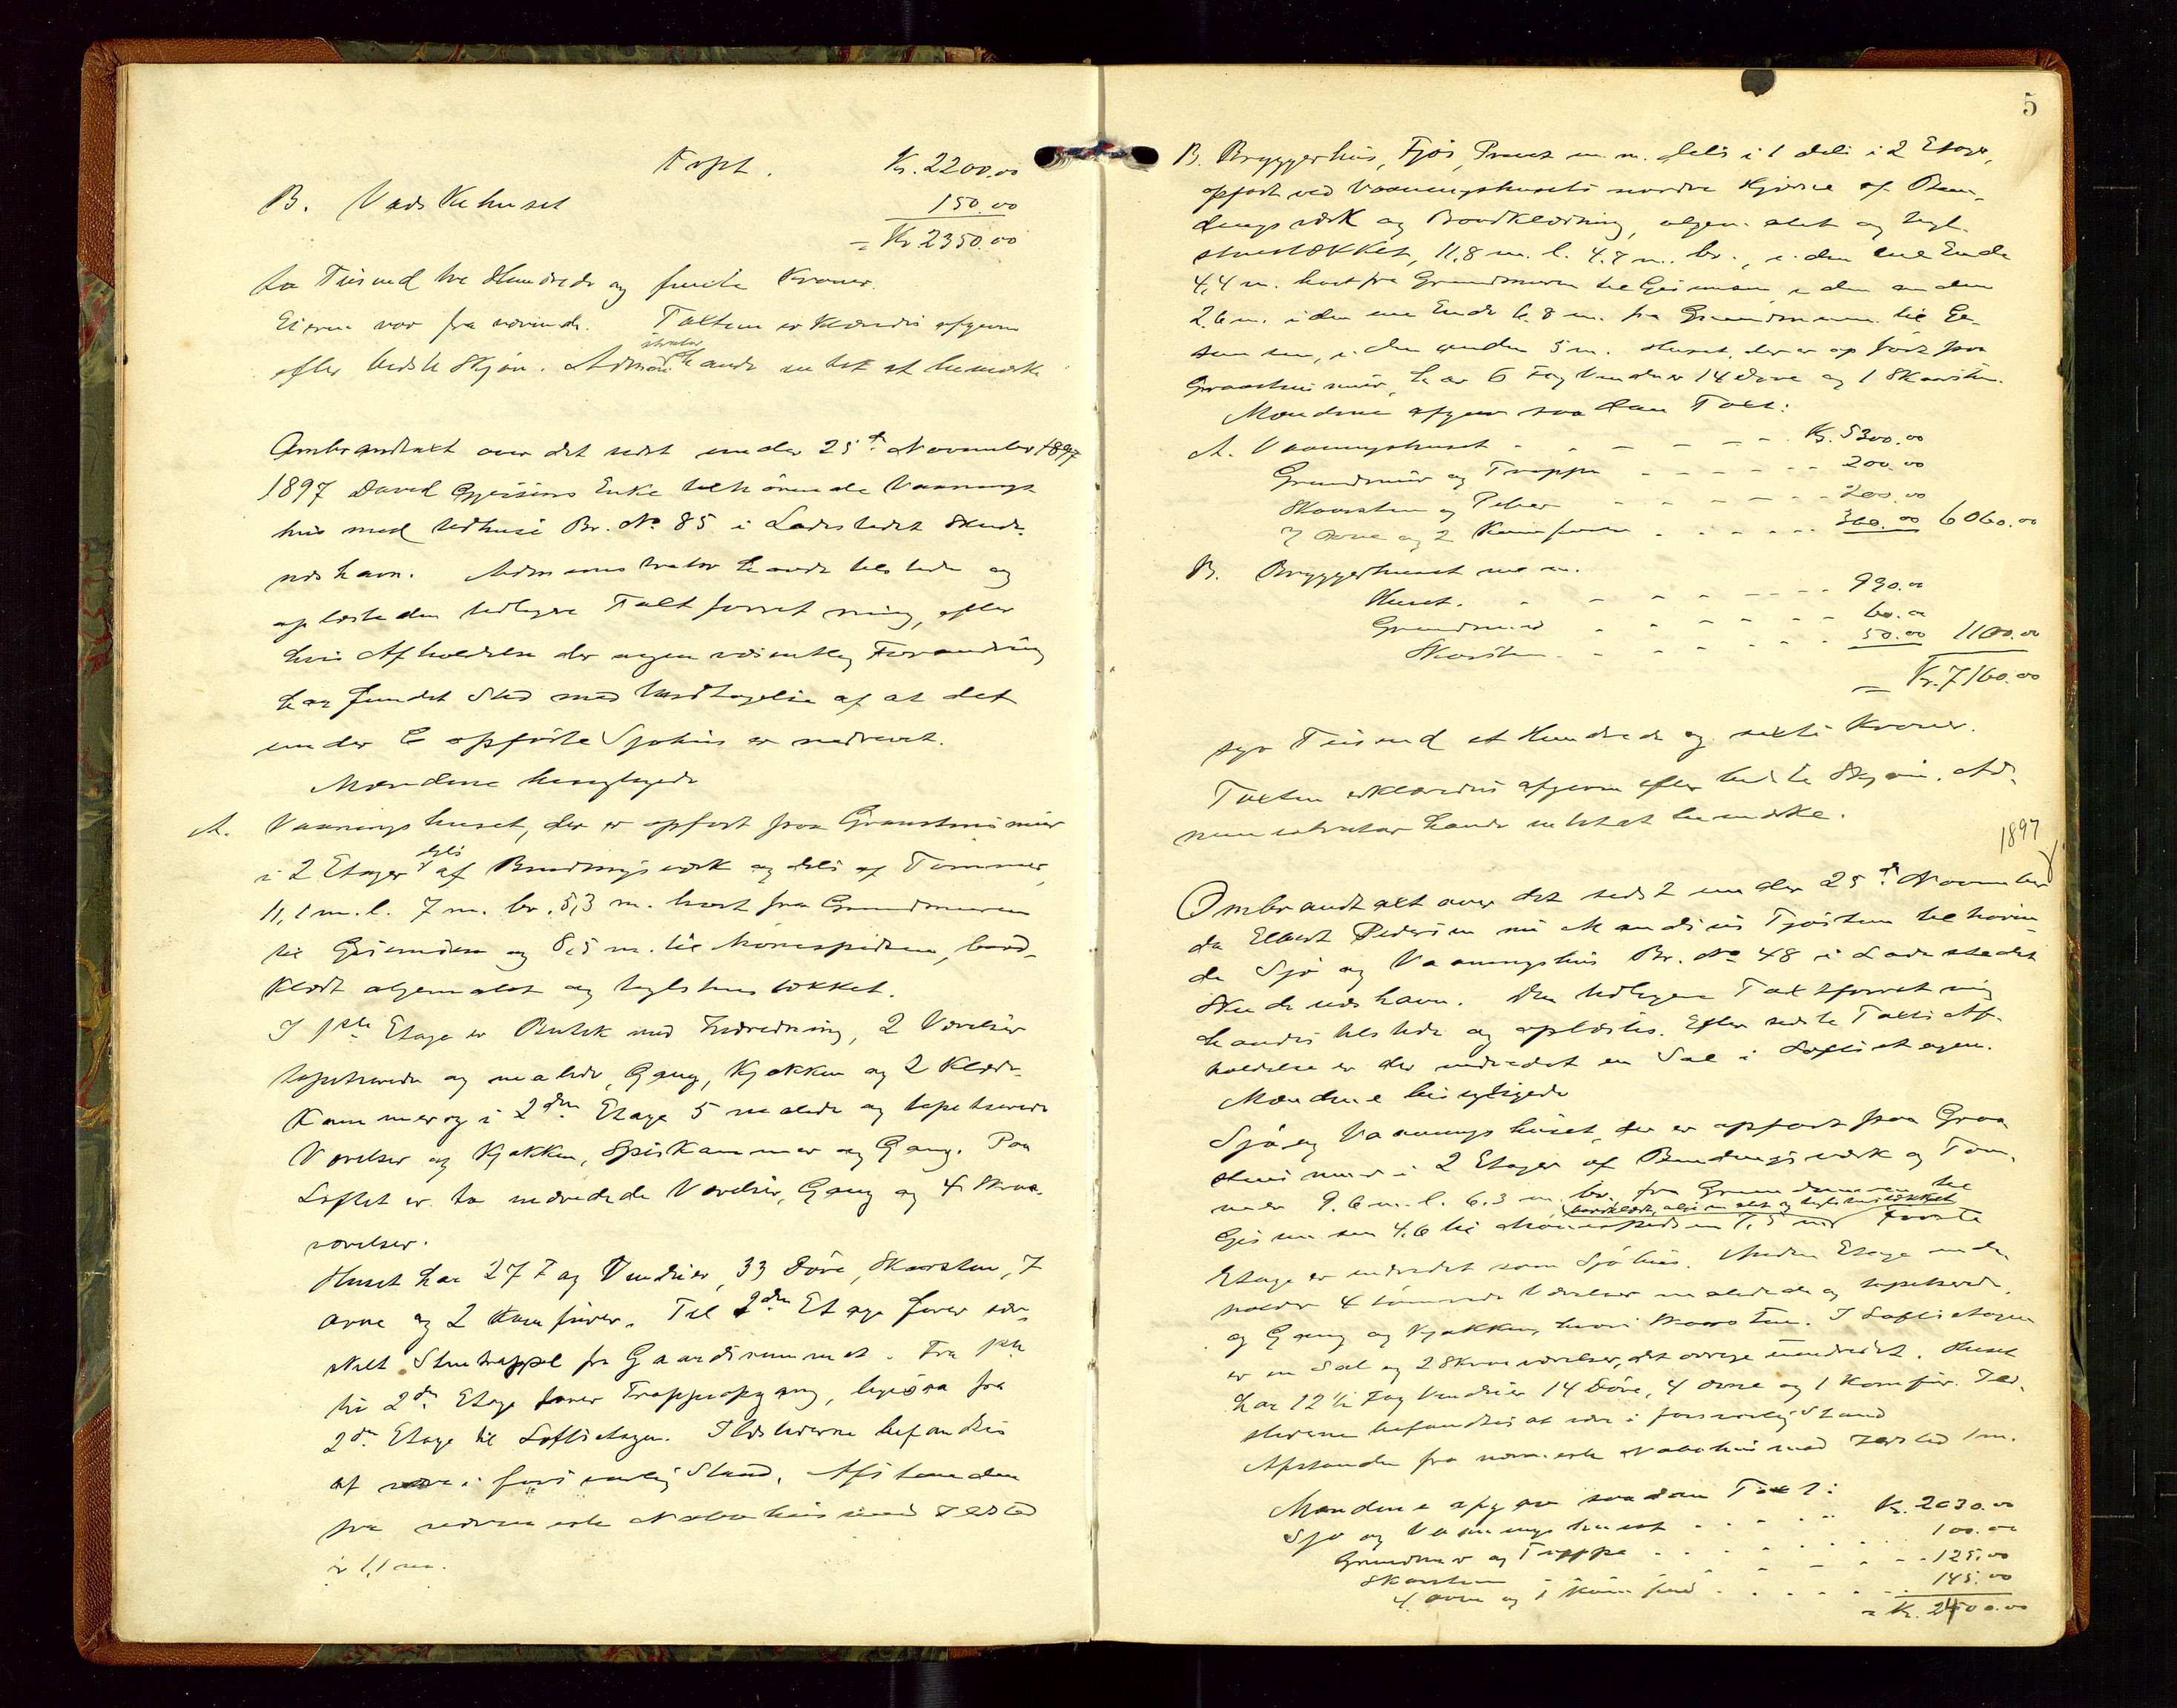 Transp. Kr. 2200.00
B. Vadskehuset 150.00
= Kr 2350.00
to Tusind tre Hundrede og femti Kroner.
Eieren var fraværende. Taxten erklæredes afgiven
efter bedste Skjøn. Administrator havde intet at bemærke
Ombrandtaxt over det sidst under 25de November 1897
1897 David Enke tilhørende Vaanings
hus med Udhuse Br. No 85 i Ladestedet Skude-
neshavn. Administrator havde tilstede og
oplæste den tidligere Taxtforretning, efter
hvis Afholdelse der ingen væsentlig Forandring
har fundet Sted med Undtagelse af at det
under C opførte Sjøhus er nedrevet.
Mændene besigtigede
A. Vaaningshuset, der er opført paa Graastensmur
i 2 Etager dels af Bindingsværk og dels af Tømmer,
11,1 m. l. 7 m. br. 5,3 m. høit fra Grundmuren
til Gesimsen og 8,5 m. til Mønespidsen, bord-
klædt oljemalet og teglstenstækket.
I 1ste Etage er Butik med Indredning, 2 Værelser
tapetserede og malede, Gang, Kjøkken og 2 Klæde-
kammer og i 2den Etage 5 malede og tapetserede
Værelser og Kjøkken, Spiskammer og Gang. Paa
Loftet er to indredede Værelser, Gang og 4 Skraa-
værelser.
Huset har 27 Fag Vinduer, 33 Døre, Skorsten, 7
Ovne og 2 Komfurer. Til 2den Etage fører sær-
skilt Stentrappe fra Gaardsrummet. Fra 1ste
til 2den Etage fører Trappeopgang, ligesaa fra
2den Etage til Loftsetagen. Ildstederne befandtes
at være i forsvarlig Stand. Afstanden
fra nærmeste Nabohus med Ildsted
er 1,1 m.
5
B. Bryggerhus, Fjøs, m. m. dels i 1 dels i 2 Etager,
opført ved Vaaningshusets nordre Hjørne af Bin-
dingsværk og Bordklædning, oljemalet og tegl-
stenstækket, 11,8 m. l. 4.7 m. br., i den ene Ende
4,4 m. høit fra Grundmuren til Gesimsen, i den anden
2.6 m. i den ene Ende 6.8 m. fra Grundmuren til Ge-
simsen, i den anden 5 m. Huset, der er opført paa
Graastensmur, har 6 Fag Vinduer 14 Døre og 1 Skorsten.
Mændene afgav saadan Taxt:
A. Vaaningshuset Kr. 5300.00
Grundmur og Trappe 200.00
Skorsten og Peber 200.00
7 Ovne og 2 Komfurer 360.00 6060.00
B. Bryggerhuset m. m.
Huset. 990.00
Grundmur 60.00
Skorsten 50.00 1100.00
= Kr. 7160.00
syv Tusind et Hundrede og sexti Kroner.
Taxten erklæredes afgiven efter bedste Skjøn. Ad-
ministrator havde intet at bemærke.
1897
Ombrandtaxt over det sidst under 25de November
da Elbert Pedersen nu Mandius Tjøsten tilhøren-
de Sjø og Vaaningshus Br. No 48 i Ladestedet
Skudeneshavn. Den tidligere Taxtforretning
havdes tilstede og oplæstes. Efter sidste Taxts Af-
holdelse er der indredet en Sal i Loftsetagen.
Mændene besigtigede
Sjø og Vaaningshuset, der er opført paa Graa
stensmur i 2 Etager af Bindingsværk og Tøm-
mer 9.6 m. l. 6.3 m. br. fra Grundmuren til
bordklædt, oljemalet og teglstenstækket
Gesimsen 4,6 til Mønespidsen 7,5 m Første
Etage er indredet som Sjøhus. Anden Etage inde
holder 4 Værelser malede og tapetserede,
og Gang og Kjøkken, hvori Skorsten. I Loftsetagen
er en Sal og 2 Skraaværelser, det øvrige uindredet. Huset
har 12 ½ Fag Vinduer 14 Døre, 4 Ovne og 1 Komfur. Ild-
stederne befandtes at være i forsvarlig Stand
Afstanden fra nærmeste Nabohus med Ildsted 1 m.
Mændene afgav saadan Taxt:
Sjø og Vaaningshuset Kr. 2030.00
Grundmur og Trappe 100.00
Skorsten 125.00
4 Ovne og 1 Komfur 145.00
= Kr. 2400.00